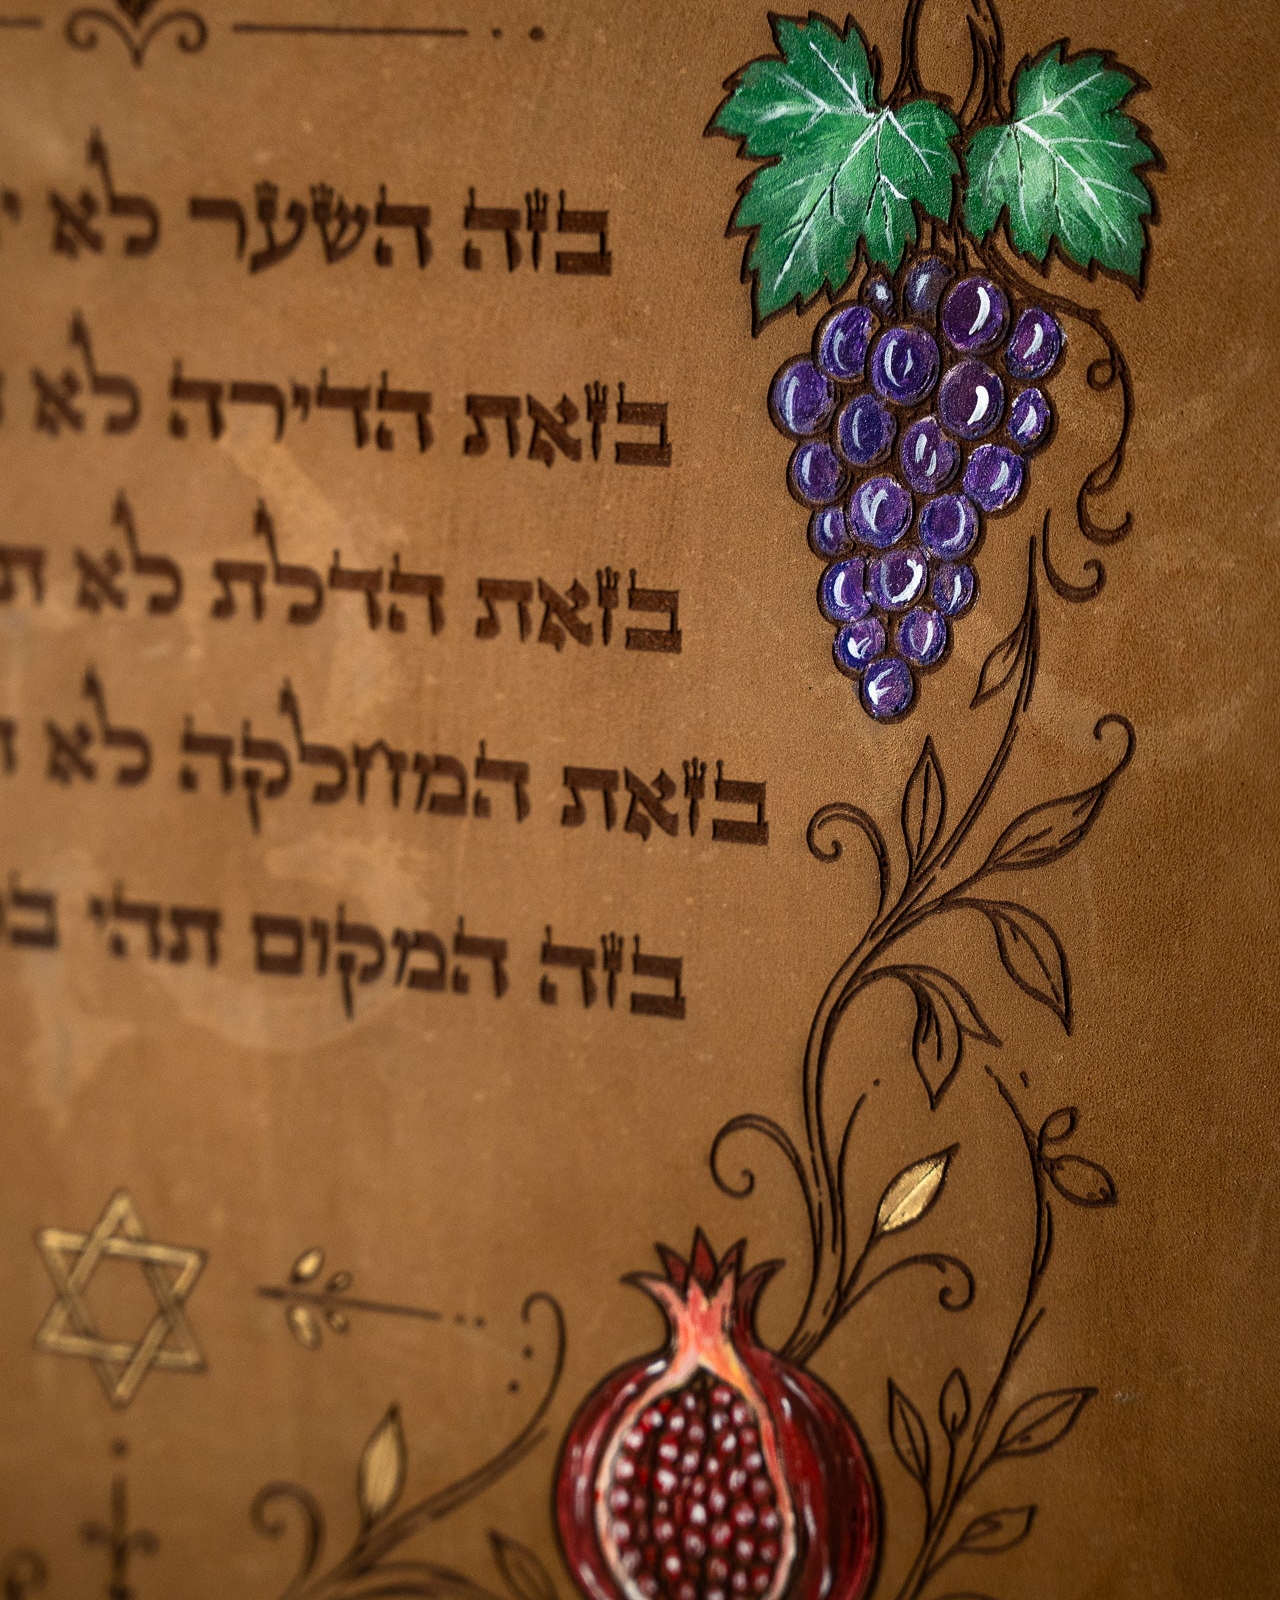 בזה השער לא
בזאת הדירה לא
בזאת הדלת לא
בזאת המחלקה לא
בזה המקום תהי